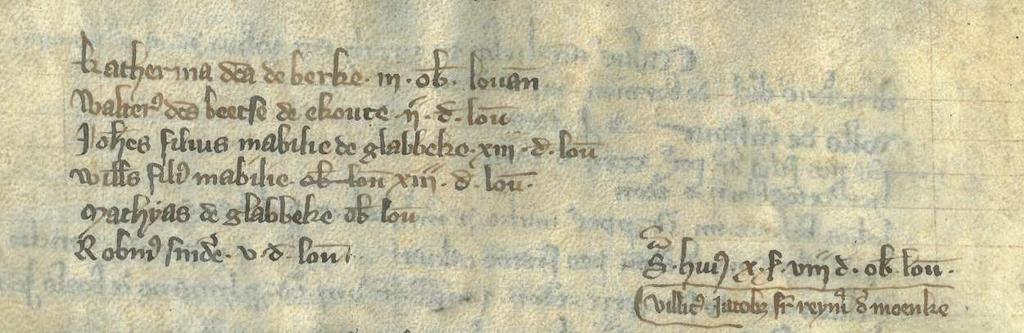 Katherina dca de berke · iii · ob · louan
Walter9 dcs beetse de ekoute · ii · d · lou
Johes filius mabilie de glabbeke · xiii · d · lou
Wills fili9 mabilie ob lou xiii · d · lou ·
Mathyas de glabbeke ob lou
Robin9 · v · d · lou
S · hui9 · x · s · viii d · ob · lou ·
villic9 Jacob fr reym de moenke